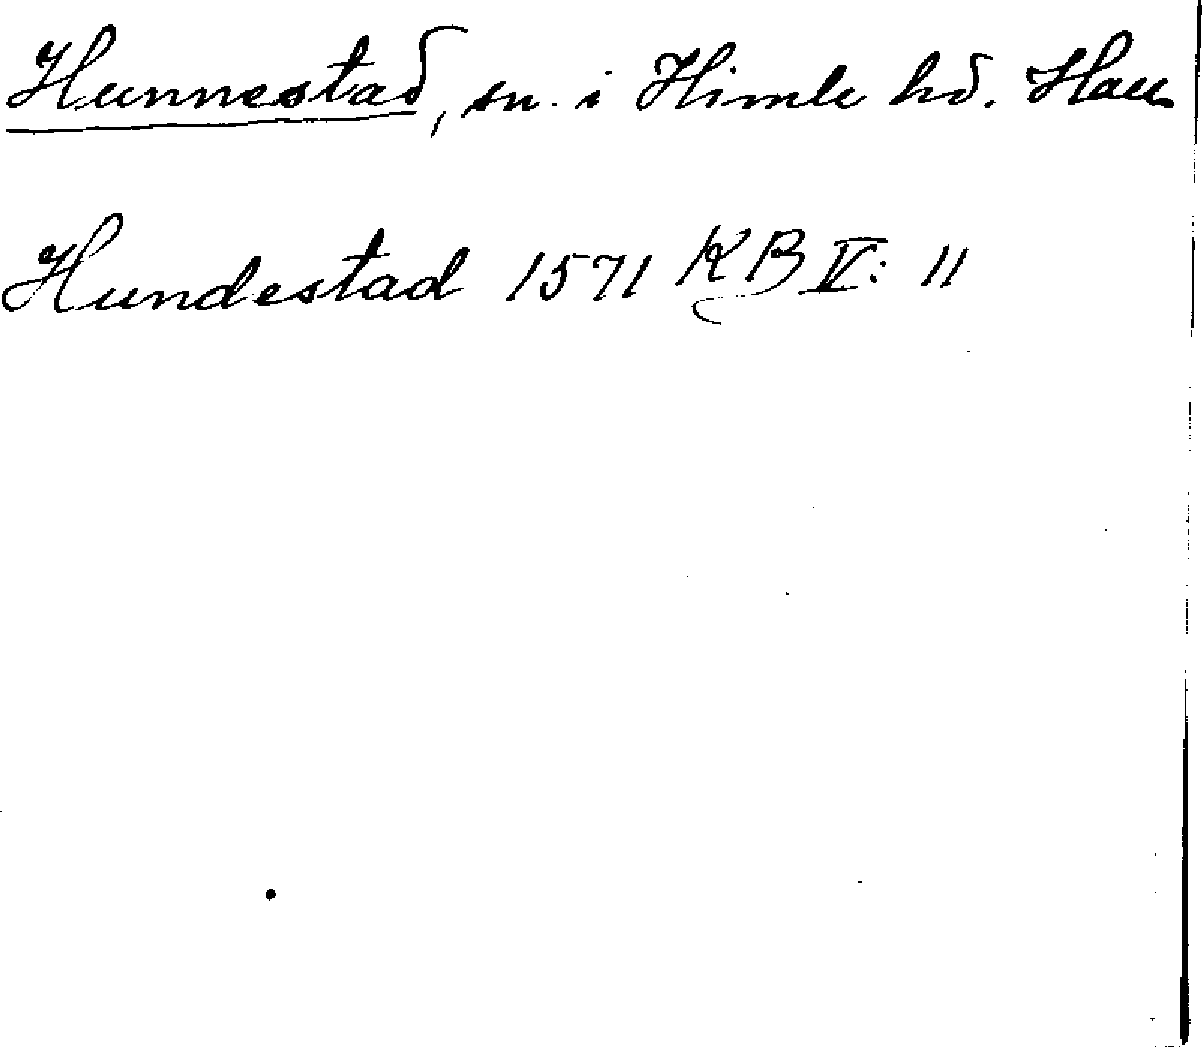 Hunnestad, sn. i Himle hd. Hall.
Hundestad 1571 KB V: 11